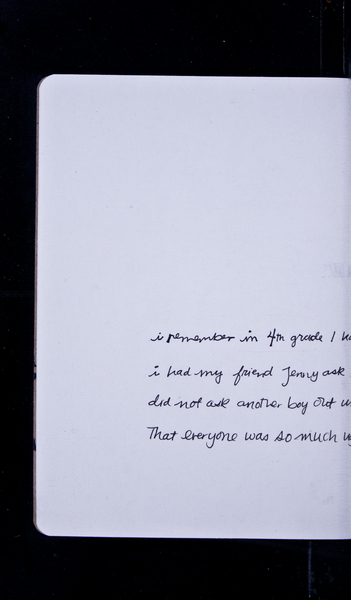 i remember in 4th grade I
i had my friend Jenny ask
did not ask another boy out
That everyone was so much